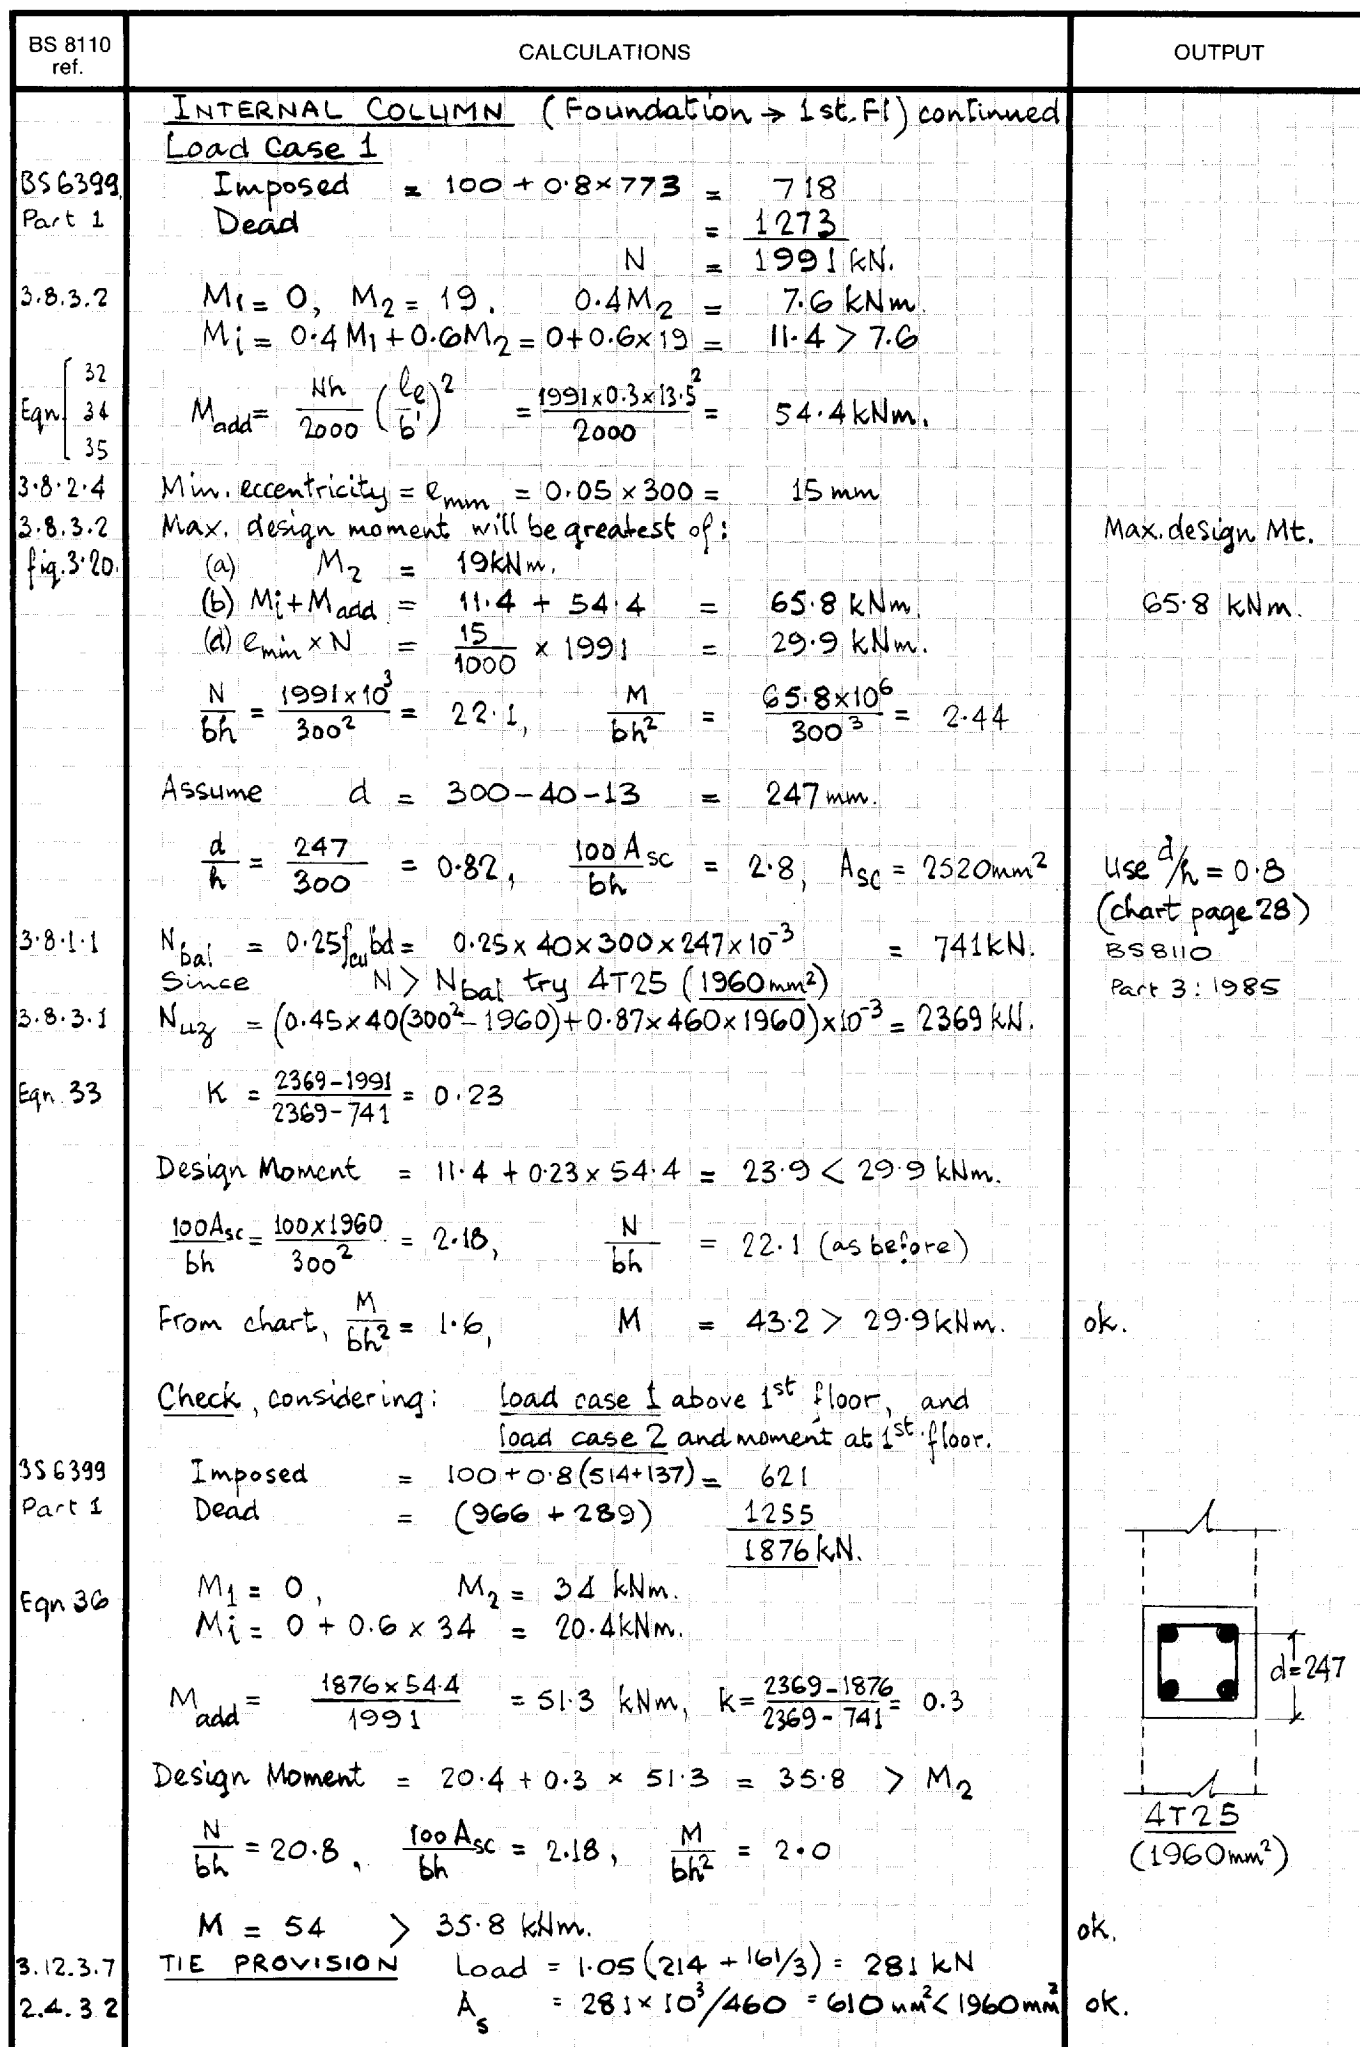 BS 8110 ref. CALCULATIONS OUTPUT
INTERNAL COLUMN (Foundation → 1st. Fl) continued
Load Case 1
BS 6399, Imposed = 100 + 0.8×773 = 718
Part 1 Dead = 1273
N = 1991 kN.
3.8.3.2 M₁ = 0, M₂ = 19. 0.4M₂ = 7.6 kNm.
Mi = 0.4 M₁ + 0.6M₂ = 0 + 0.6×19 = 11.4 > 7.6
Eqn. 32 34 35 Madd = Nh/2000 (le/b')² = 1991×0.3×13.5²/2000 = 54.4 kNm.
3.8.2.4 Min. eccentricity = emin = 0.05 × 300 = 15 mm
3.8.3.2 Max. design moment will be greatest of: Max. design Mt.
fig. 3.20. (a) M₂ = 19kNm.
(b) Mi + Madd = 11.4 + 54.4 = 65.8 kNm. 65.8 kNm.
(d) emin × N = 15/1000 × 1991 = 29.9 kNm.
N/bh = 1991×10³/300² = 22.1, M/bh² = 65.8×10⁶/300³ = 2.44
Assume d = 300-40-13 = 247 mm.
d/h = 247/300 = 0.82, 100 Asc/bh = 2.8, Asc = 2520mm² Use d/h = 0.8
(chart page 28)
3.8.1.1 Nbal = 0.25fcu bd = 0.25 × 40 × 300 × 247 × 10⁻³ = 741 kN. BS 8110
Since N > Nbal try 4T25 (1960 mm²) Part 3 : 1985
3.8.3.1 Nuz = (0.45×40(300² - 1960) + 0.87×460×1960)×10⁻³ = 2369 kN.
Eqn. 33 K = 2369-1991/2369-741 = 0.23
Design Moment = 11.4 + 0.23 × 54.4 = 23.9 < 29.9 kNm.
100Asc/bh = 100×1960/300² = 2.18, N/bh = 22.1 (as before)
From chart, M/bh² = 1.6, M = 43.2 > 29.9 kNm. ok.
Check, considering: load case 1 above 1st floor, and
load case 2 and moment at 1st. floor.
BS 6399 Imposed = 100 + 0.8 (514+137) = 621
Part 1 Dead = (966 + 289) 1255
1876 kN.
Eqn 36 M₁ = 0, M₂ = 34 kNm.
Mi = 0 + 0.6 × 34 = 20.4kNm.
d=247
Madd = 1876 × 54.4/1991 = 51.3 kNm, k = 2369-1876/2369-741 = 0.3
Design Moment = 20.4 + 0.3 × 51.3 = 35.8 > M₂
4T25
N/bh = 20.8, 100 Asc/bh = 2.18, M/bh² = 2.0 (1960mm²)
M = 54 > 35.8 kNm. ok.
3.12.3.7 TIE PROVISION Load = 1.05 (214 + 161/3) = 281 kN
2.4.3 2 As = 281 × 10³/460 = 610 mm² < 1960mm² ok.